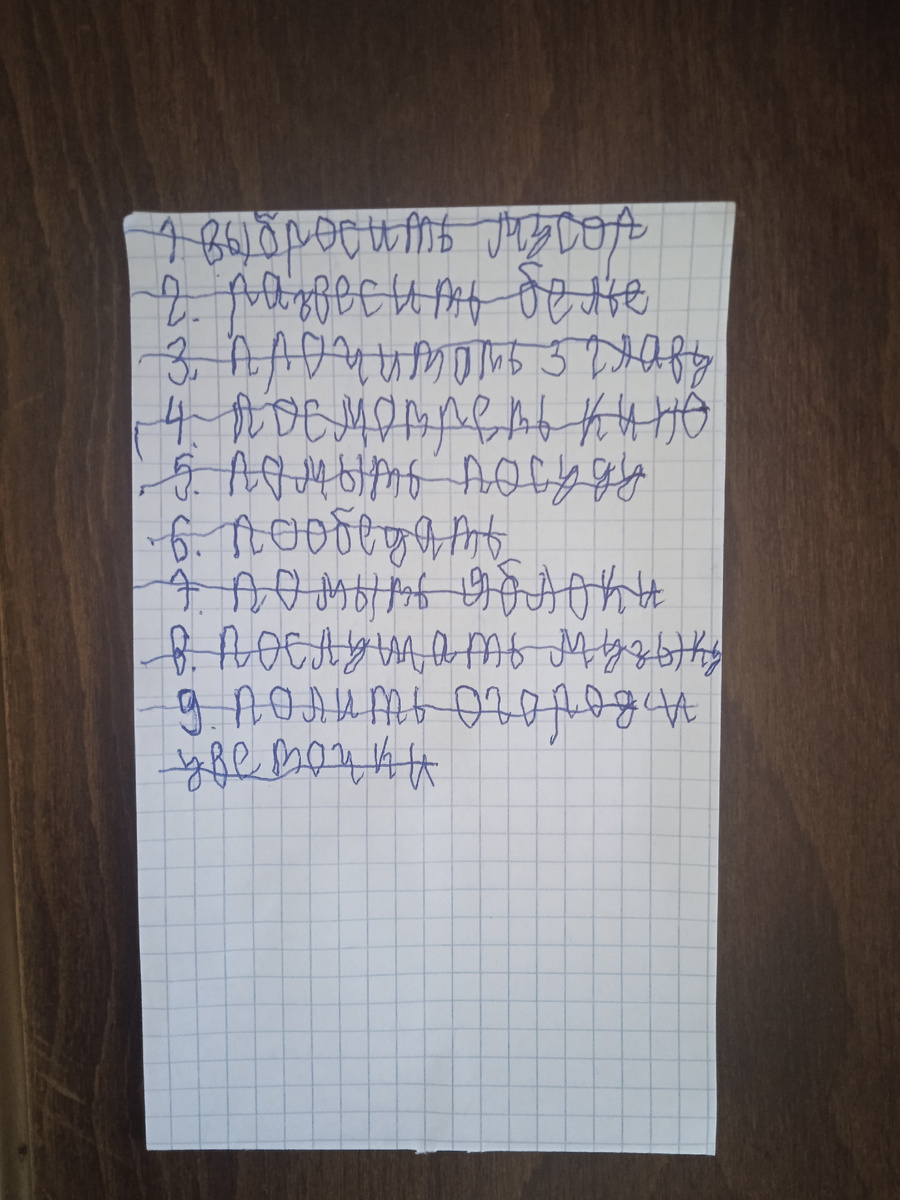 1. выбросить мусор
2. развесить белье
3. прочитать 3 главу
4. посмотреть кино
5. помыть посуду
6. пообедать
7. помыть яблоки
8. послушать музыку
9. полить огород и
цветочки